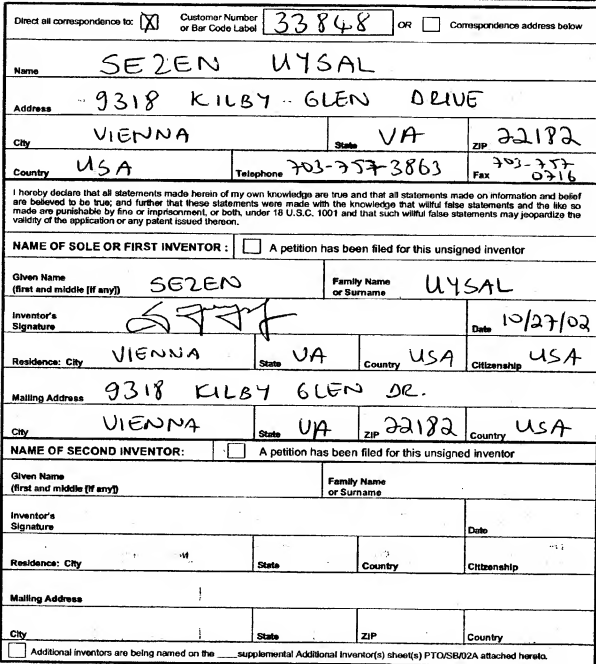 Direct all correspondence to: [X] Customer Number or Bar Code Label 33848 OR [ ] Correspondence address below
Name SEZEN UYSAL
Address 9318 KILBY GLEN DRIVE
City VIENNA State VA ZIP 22182
Country USA Telephone 703-757-3863 Fax 703-757-0716
I hereby declare that all statements made herein of my own knowledge are true and that all statements made on information and belief
are believed to be true; and further that these statements were made with the knowledge that willful false statements and the like so
made are punishable by fine or imprisonment, or both, under 18 U.S.C. 1001 and that such willful false statements may jeopardize the
validity of the application or any patent issued thereon.
NAME OF SOLE OR FIRST INVENTOR : [ ] A petition has been filed for this unsigned inventor
Given Name (first and middle [if any]) SEZEN Family Name or Surname UYSAL
Inventor's Signature Date 10/27/02
Residence: City VIENNA State VA Country USA Citizenship USA
Mailing Address 9318 KILBY GLEN DR.
City VIENNA State VA ZIP 22182 Country USA
NAME OF SECOND INVENTOR: [ ] A petition has been filed for this unsigned inventor
Given Name (first and middle [if any]) Family Name or Surname
Inventor's Signature Date
Residence: City State Country Citizenship
Mailing Address
City State ZIP Country
[ ] Additional inventors are being named on the ____supplemental Additional Inventor(s) sheet(s) PTO/SB/02A attached hereto.